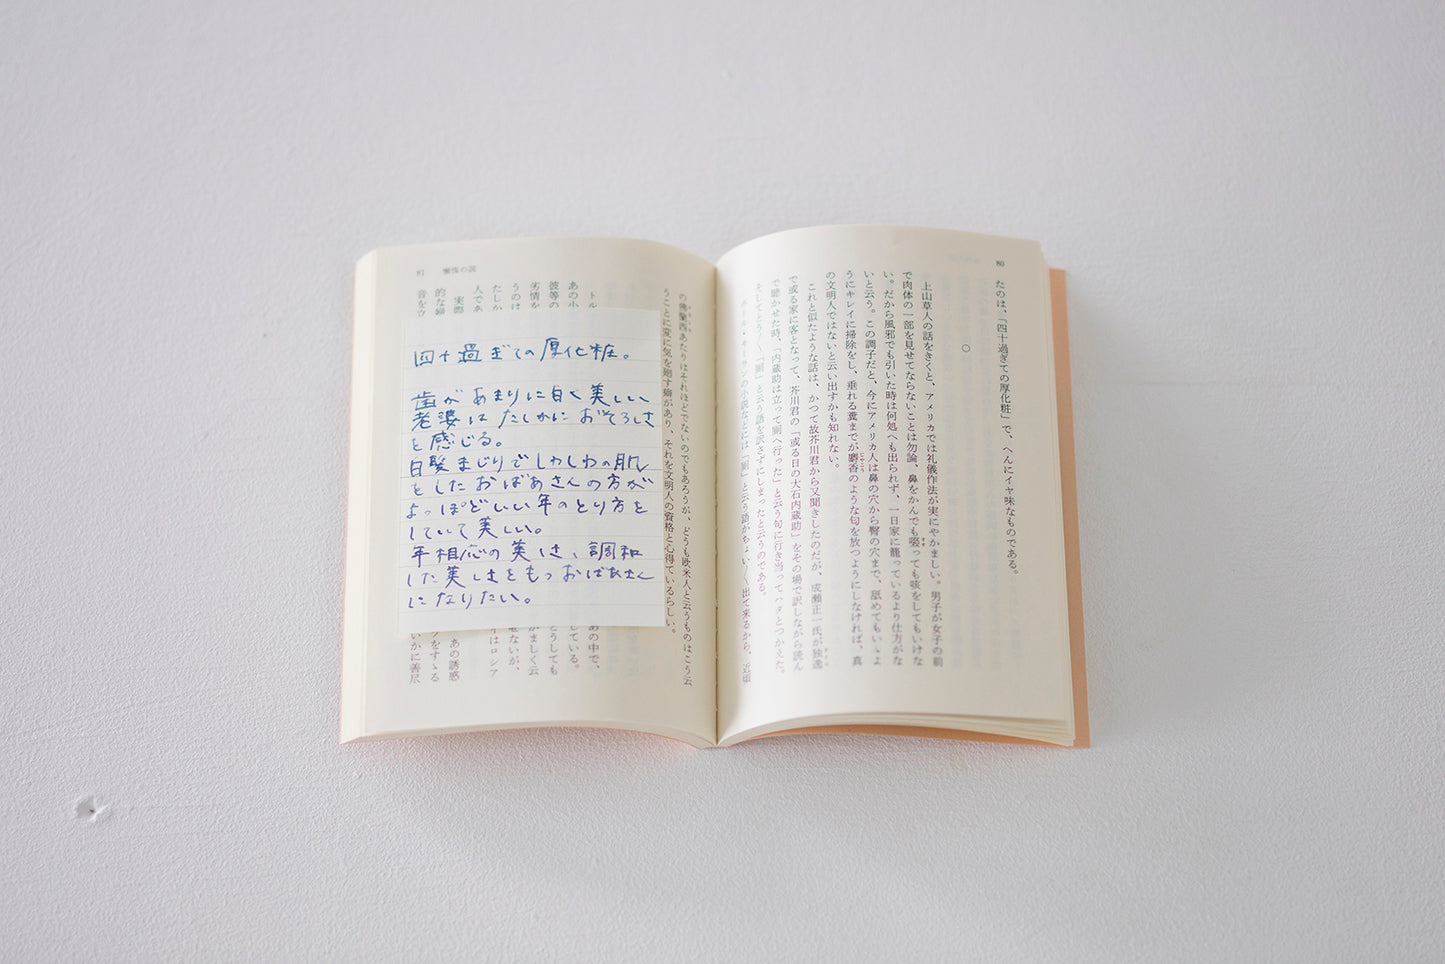 80
たのは、「四十過ぎての厚化粧」で、へんにイヤ味なものである。
○
上山草人の話をきくと、アメリカでは礼儀作法が実にやかましい。男子が女子の前
で肉体の一部を見せてならないことは勿論、鼻をかんでも啜っても咳をしてもいけな
い。だから風邪でも引いた時は何処へも出られず、一日家に籠っているより仕方がな
いと云う。この調子だと、今にアメリカ人は鼻の穴から臀の穴まで、舐めてもいゝよ
うにキレイに掃除をし、垂れる糞までが麝香のような匂を放つようにしなければ、真
の文明人ではないと云い出すかも知れない。
これと似たような話は、かつて故芥川君から又聞きしたのだが、成瀬正一氏が独逸
で或る家に客となって、芥川君の「或る日の大石内蔵助」をその場で訳しながら読ん
で聴かせた時、「内蔵助は立って厠へ行った」と云う句に行き当ってハタとつかえた。
そしてとう〳〵「厠」と云う語を訳さずにしまったと云うのである。
ポール・モーランの小説などには「厠」と云う語がちょい〳〵出て来るから、近頃
81 懶惰の説
の佛蘭西あたりはそれほどでないのでもあろうが、どうも欧米人と云うものはこう云
うことに変に気を廻す癖があり、それを文明人の資格と心得ているらしい。
トル
あの小
彼等の
劣情を
うのは
たしか
人であ
実際
的な線
音をウ
四十過ぎての厚化粧。
歯があまりに白く美しい
老婆はたしかにおそろしさ
を感じる。
白髪まじりでしわしわの肌
をしたおばあさんの方が
よっぽどいい年のとり方を
していて美しい。
年相応の美しさ、調和
した美しさをもつおばあさん
になりたい。
あの中で、
している。
とうしても
がましく云
せないが、
はロシア
あの誘惑
をすゝる
かに善尽